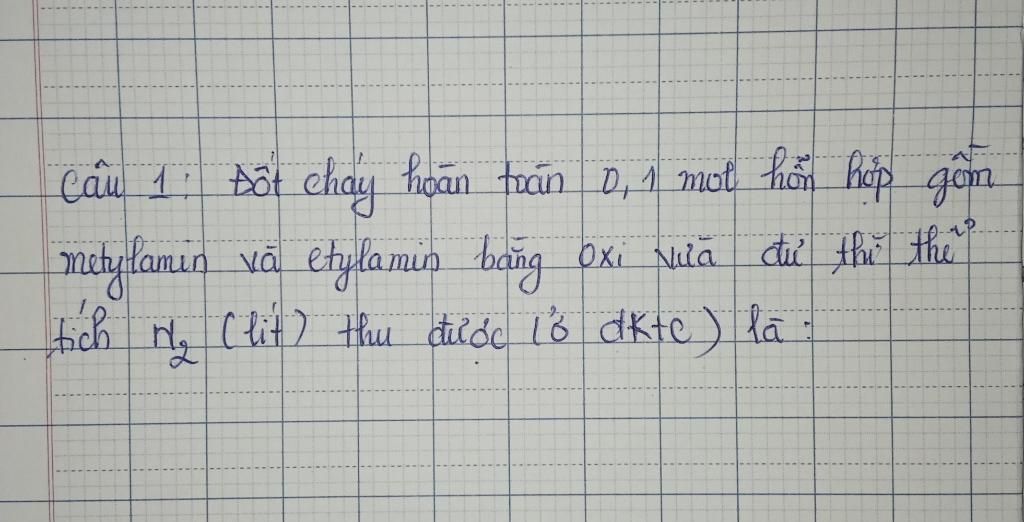 Câu 1: Đốt cháy hoàn toàn 0,1 mol hỗn hợp gồm
metylamin và etylamin bằng oxi vừa đủ thì thể
tích N₂ (lít) thu được (ở đktc) là: